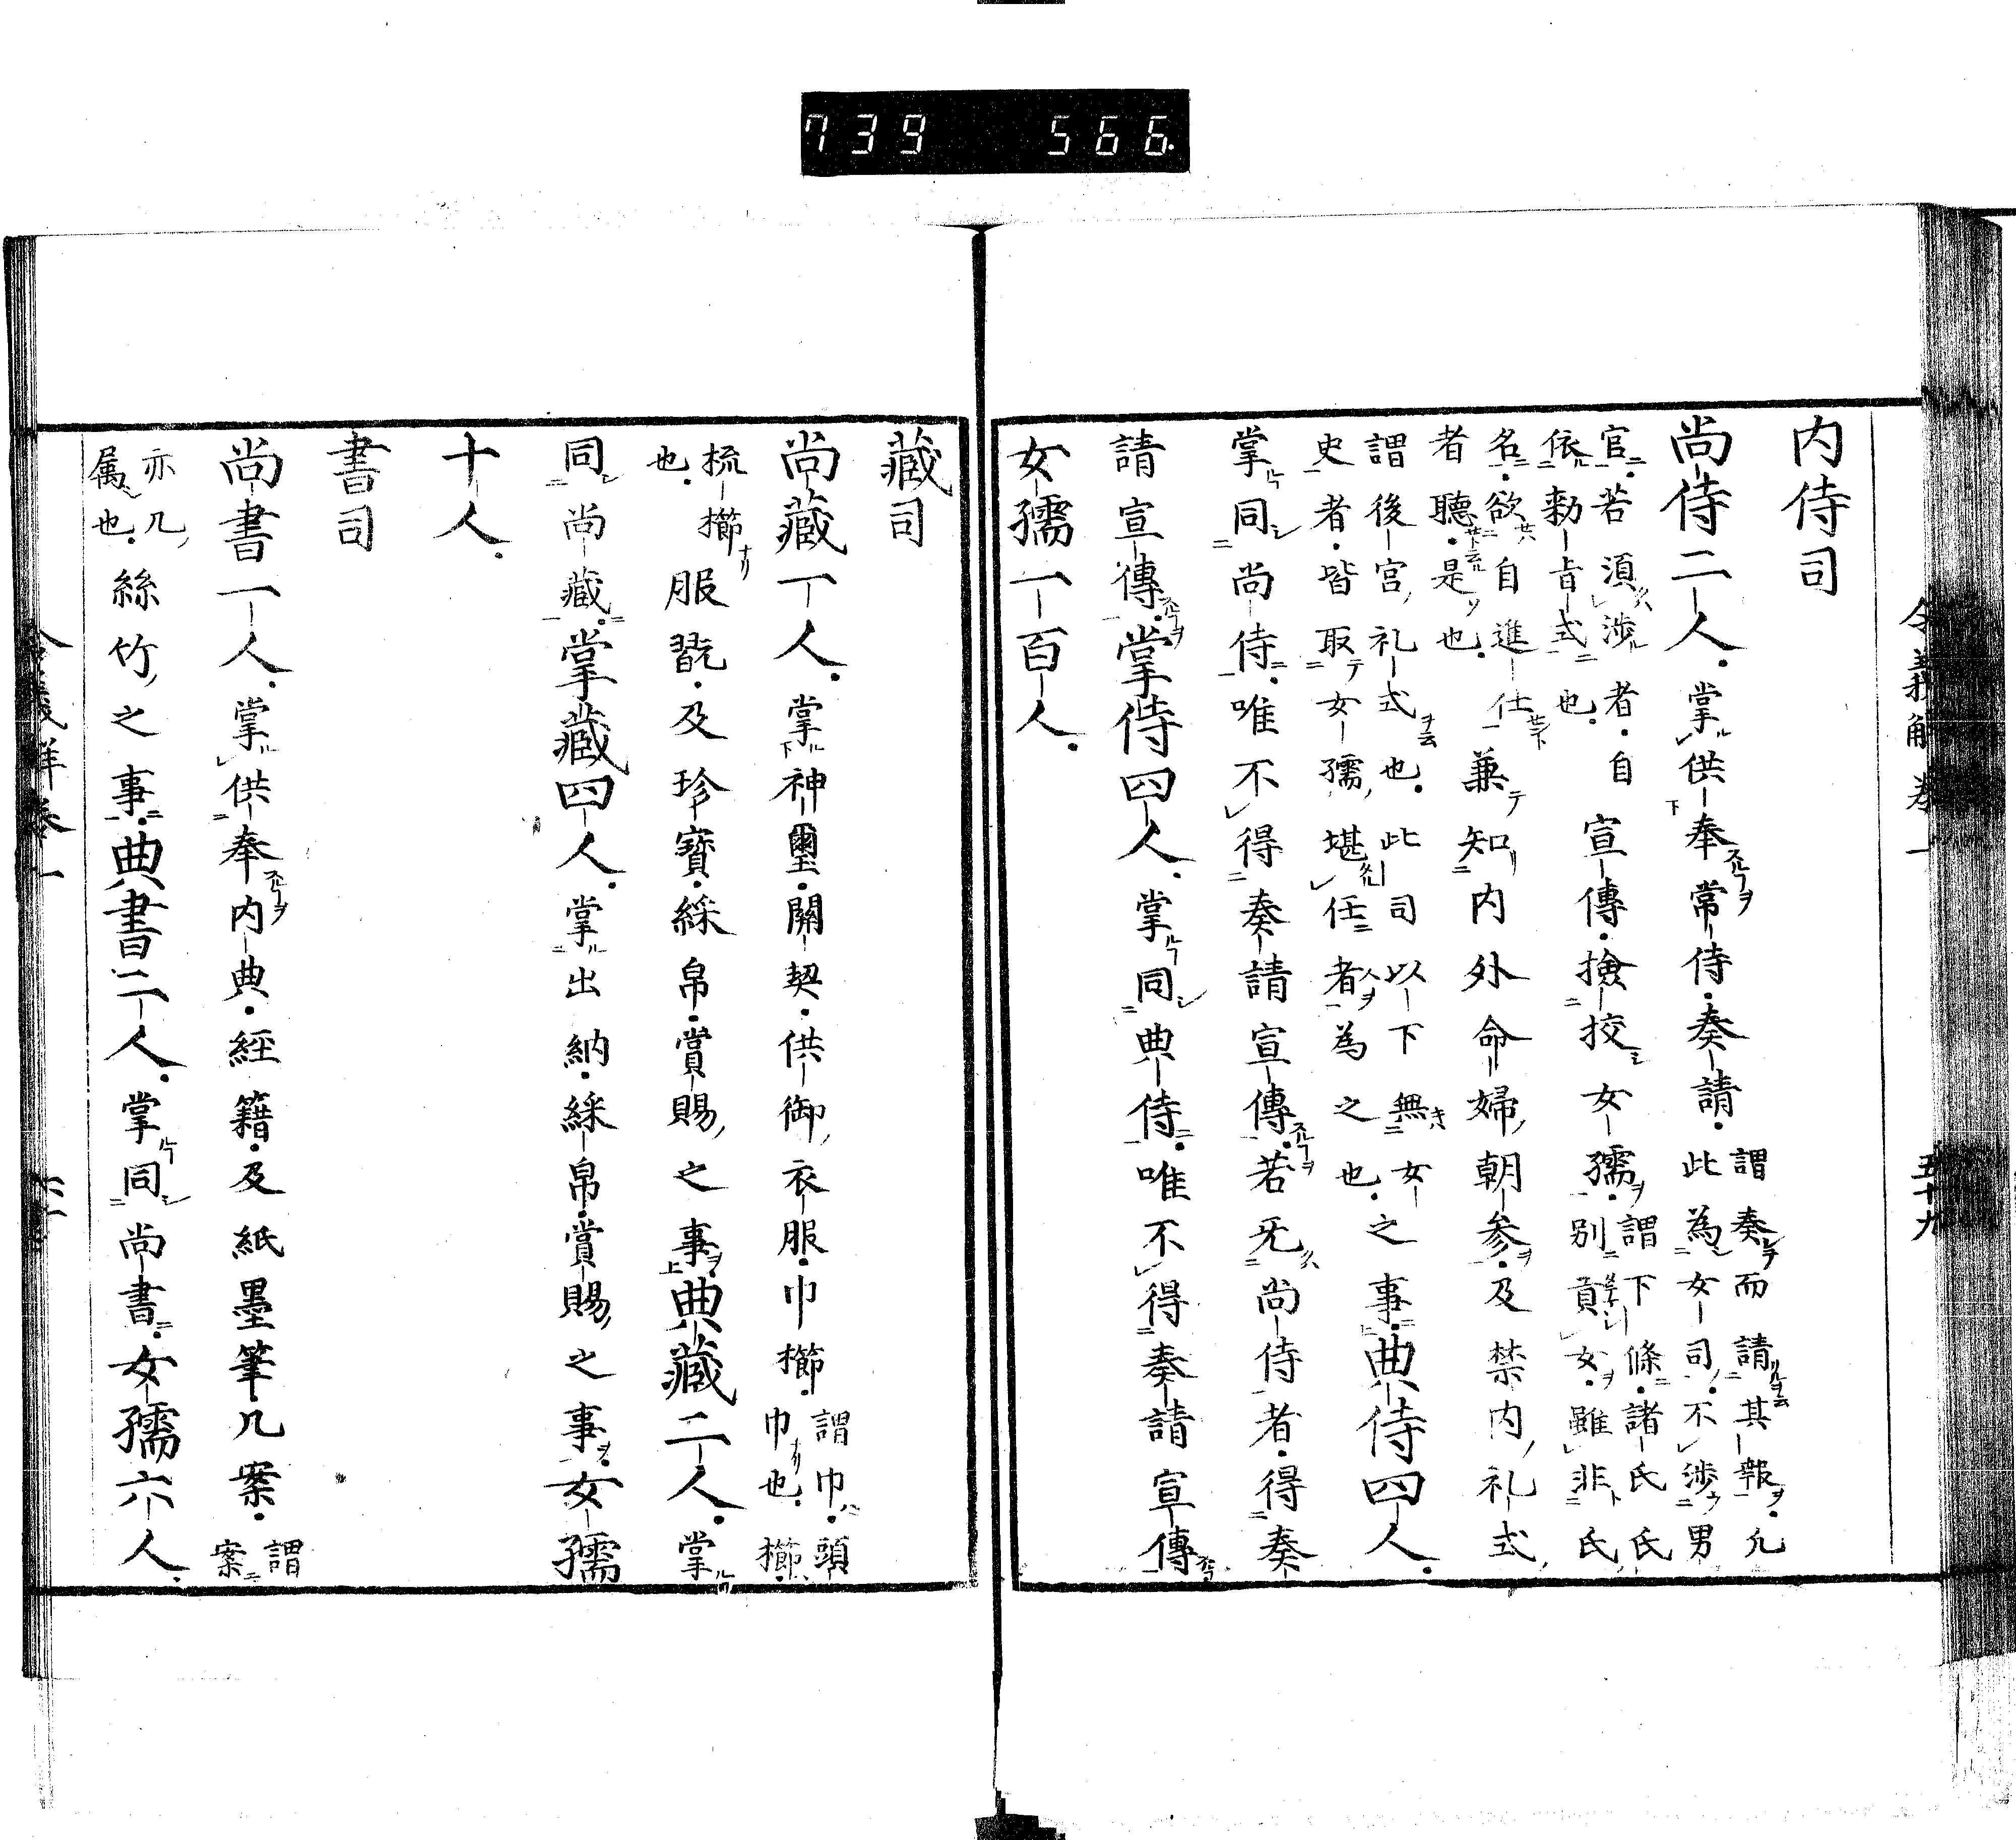 739 566
令義解卷一 五十九
内侍司
尚侍二人。掌供奉常侍。奏請。謂奏而請其報。凢
此為女司。不渉男
官。若須渉者。自
依勅旨式也。宣傳。撿挍女孺。謂下條。諸氏氏
別貢女。雖非氏
名。欲自進仕
者聽。是也。兼知内外命婦朝参。及禁内礼式
謂後宮礼式也。此司以下無女
史者。皆取女孺堪任者為之也。之事。典侍四人。
掌同尚侍。唯不得奏請宣傳。若无尚侍者。得奏
請宣傳。掌侍四人。掌同典侍。唯不得奏請宣傳
女孺一百人。
藏司
尚藏一人。掌神璽。關契。供御衣服。巾櫛。謂巾。頭
巾也。櫛。
梳櫛
也。服翫。及珍寶。綵帛。賞賜之事。典藏二人。掌
同尚藏。掌藏四人。掌出納。綵帛。賞賜之事。女孺
十人。
書司
尚書一人。掌供奉内典。經籍。及紙墨筆。几案。謂
案
亦几
属也。絲竹之事。典書二人。掌同尚書。女孺六人。